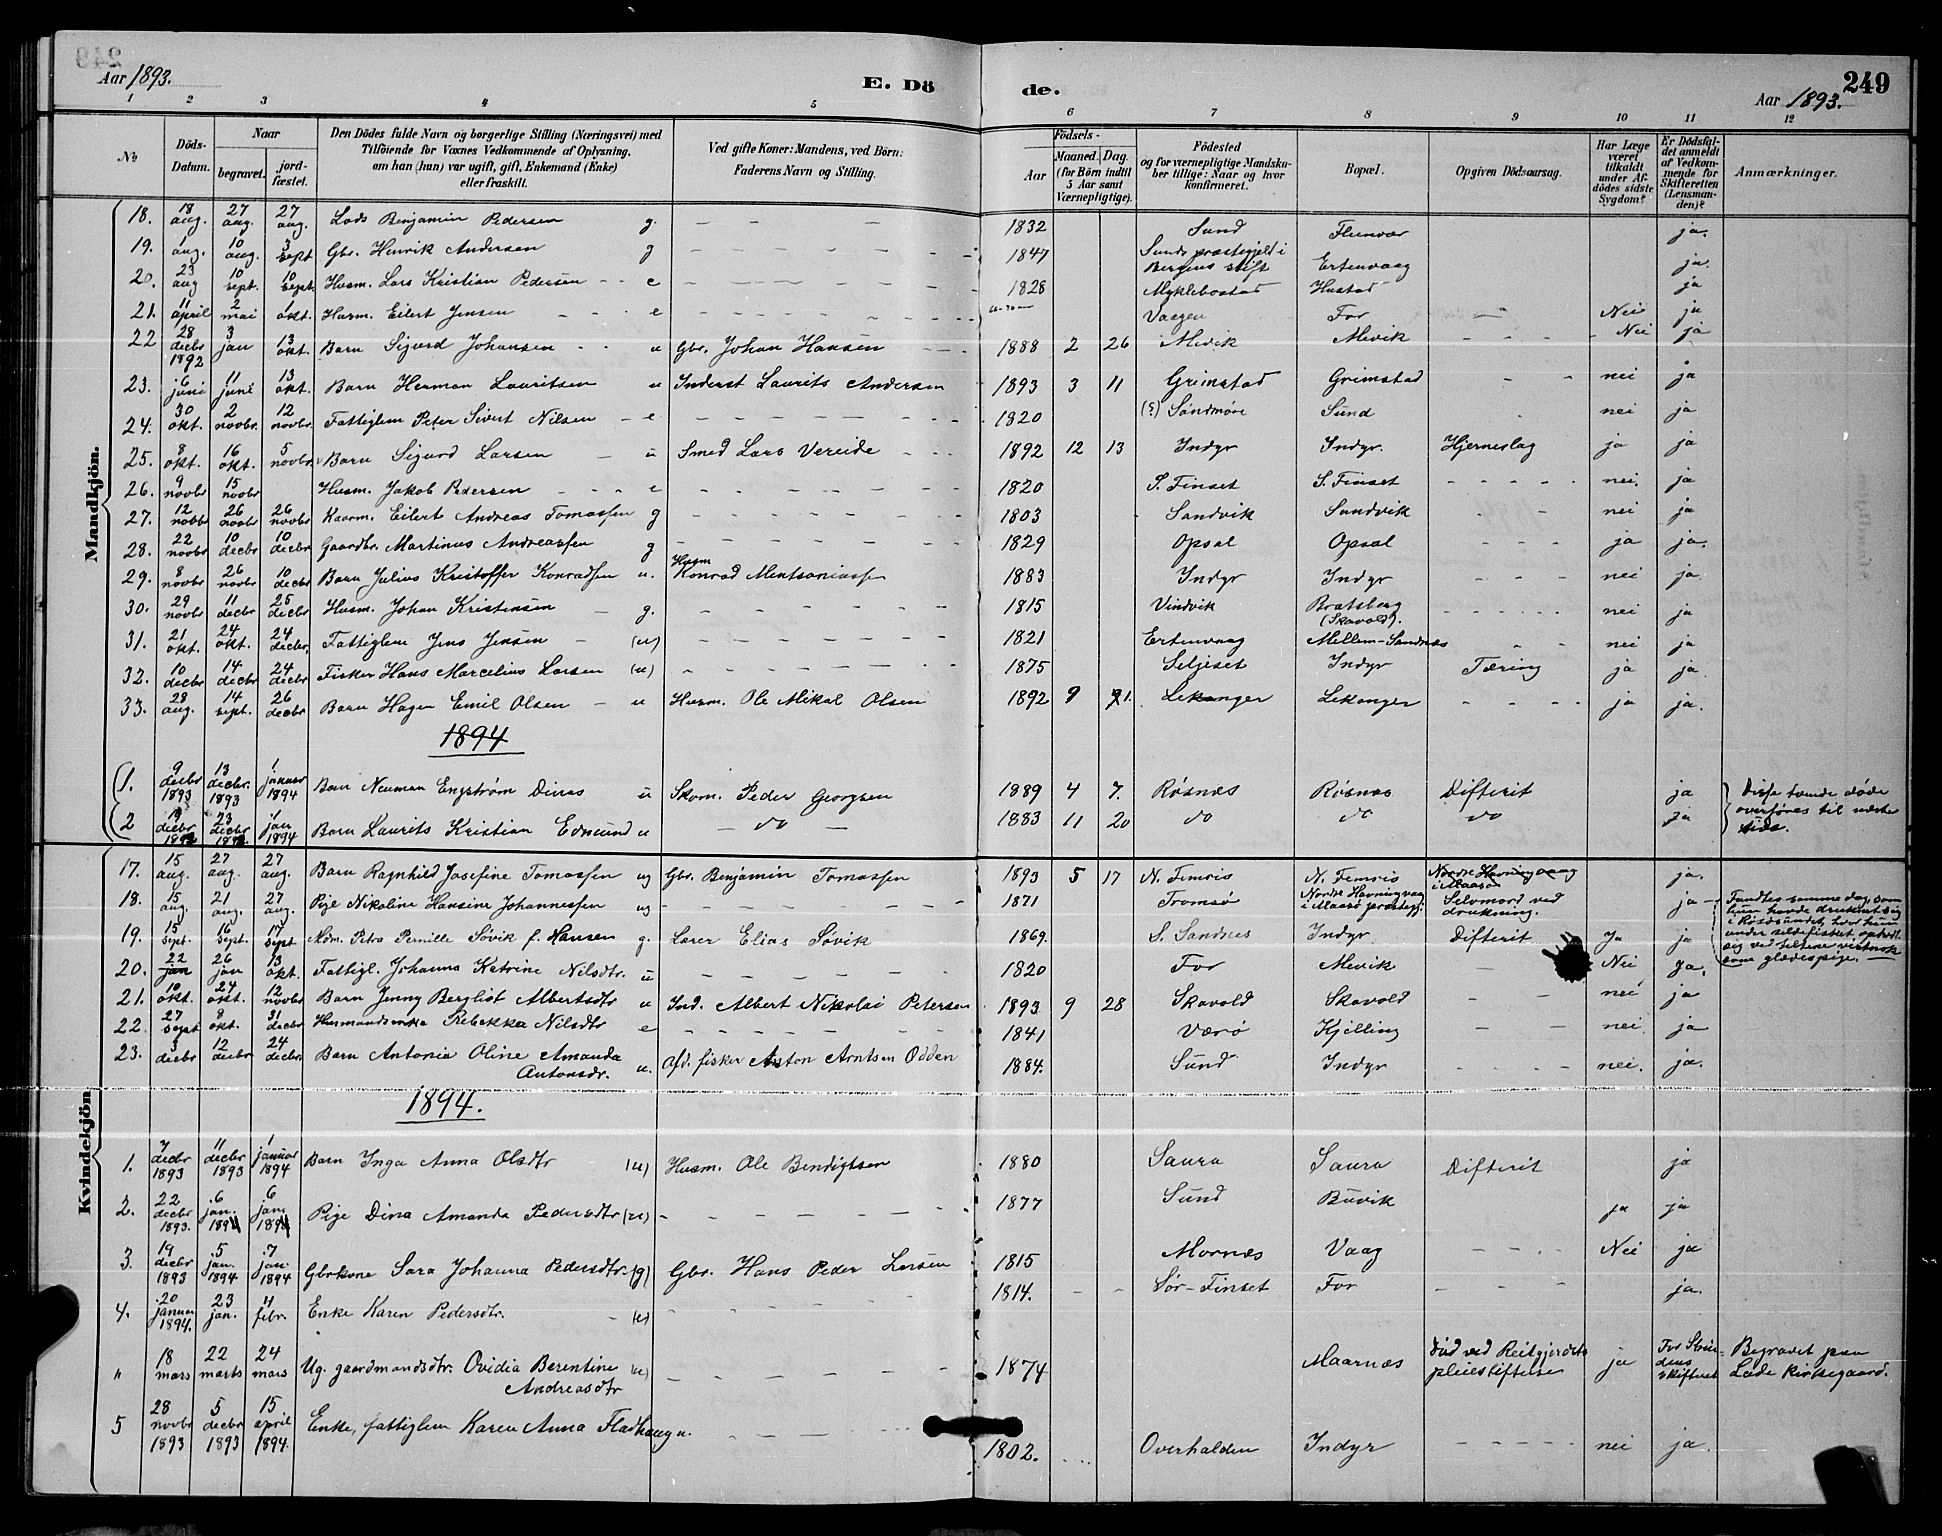 249
Aar 1893.
E. Dö de.
Aar 1893.
1 2 3 4 5 6 7 8 9 10 11 12
No
Döds-Datum.
Naar
begravet.
jord-fæstet.
Den Dödes fulde Navn og borgerlige Stilling (Næringsvei) med
Tilföiende for Voxnes Vedkommende af Oplysning.
om han (hun) var ugift, gift, Enkemand (Enke)
eller fraskilt.
Ved gifte Koner: Mandens, ved Börn:
Faderens Navn og Stilling.
Födsels-
Aar
Maaned. Dag.
(for Börn indtil
5 Aar samt
Værnepligtige).
Födested
og for værnepligtige Mandska-
ber tillige: Naar og hvor
konfirmeret.
Bopæl.
Opgiven Dödsaarsag.
Har Læge
været
tilkaldt
under Af-
dödes sidste
Sygdom?
Er Dödsfal-
det anmeldt
af Vedkom-
mende for
Skifteretten
(Lensman-
den)?
Anmærkninger.
Mandkjön.
18. 18 aug. 27 aug. 27 aug. Lods Benjamin Pedersen g. — — — 1832 Sund Fleinvær ja.
19. 1 aug. 10 aug. 3 sept Gbr. Henrik Andersen g — — — 1847 Sunds præstegjeld i Bergens stift Ertenvaag ja.
20. 23 aug 10 sept. 10 sept. Husm. Lars Kristian Pedersen e — — — 1828 Myklebostad Hustad ja
21. 11 april 2 mai 1 okt. Husm. Eilert Jensen e — — — Vaagen For — Nei ja
22 28 decbr 1892 3 jan 13 okt. Barn Sigurd Johansen u Gbr. Johan Hansen 1888 2 26 Mevik Mevik — Nei ja
23. 6 juni 11 juni 13 okt. Barn Herman Lauritsen u Inderst Laurits Andersen 1893 3 11 Grimstad Grimstad — nei ja
24. 30 okt. 2 novbr. 12 novbr. Fattiglem Peter Sivert Nilsen e — — — 1820 (?) Söndmöre Sund nei ja
25. 8 okt. 16 okt. 5 novbr. Barn Sigurd Larsen u Smed Lars Vereide 1892 12 13 Indyr Indyr. Hjerneslag ja ja
26. 9 novbr 15 novbr Husm. Jakob Pedersen e — — — 1820 S. Finset S. Finset — nei. ja
27. 12 novbr 26 novbr 26 novbr Kaarm. Eilert Andreas Tomassen g — — — 1803 Sandvik Sandvik — nei ja
28. 22 novbr 10 decbr 10 decbr Gaardbr. Martinus Andreassen g — — — 1829 Opsal Opsal — ja ja.
29. 8 novbr 26 novbr 10 decbr Barn Julius Kristoffer Konradsen u. Husm Konrad Mentsoniassen 1883 Indyr Indyr — nei ja
30. 29 novbr 11 decbr 25 decbr Husm. Johan Kristensen g. — — — 1815 Vindvik Bratsberg (Skavold). — nei ja
31. 21 okt. 24 okt. 24 decbr. Fattiglem Jens Jensen (u) — — — 1821 Ertenvaag Mellem-Sandnes — nei ja
32. 10 decbr 14 decbr 24 decbr Fisker Hans Marcelius Larsen (u) — — — 1875 Seljeset Indyr Tæring ja ja
33. 28 aug. 14 sept. 26 decbr Barn Hagen Emil Olsen u Husm. Ole Mikal Olsen 1892 9 21. Lekanger Lekanger — ja ja.
1894
1. 9 decbr 1893 13 decbr. 1893 1 januar 1894 Barn Neuman Engström Dinus u Skom. Peder Georgsen 1889 4 7. Røsnæs Røsnæs Difterit ja Disse tvende døde
2 19 decbr 1893 23 decbr 1893 1 jan 1894 Barn Laurits Kristian Edmund u — do — 1883 11 20 do do do ja overføres til næste side.
Kvindekjön
17. 15 aug. 27 aug. 27 aug. Barn Ragnhild Josefine Tomassen ug Gbr. Benjamin Tomassen 1893 5 17 N. Femris N. Femris Nordre Havningvaag i Maasø ja.
18. 15 aug. 21 aug. 27 aug. Pige Nikoline Hansine Johannessen ug — — — 1871 Tromsø Nordre Havningvaag i Maasø præstegj. Selvmord ved drukning. ja Fandtes samme dag, som
hun havde druknet sig
i Røstsundet, hvor hun
under sildefisket opholdt
sig ved telterne vistnok
som glædespige.
19. 15 sept. 16 sept. 17 sept Mdm. Petra Pernille Søvik f. Hansen g. Lærer Elias Søvik 1869. S. Sandnes Indyr. Difterit Ja ja
20. 22 jan 26 jan 13 okt. Fattigl. Johanna Katrine Nilsdtr. u — — — 1820 For Mevik — Nei Ja.
21. 10 okt. 24 okt. 12 novbr Barn Jenny Berglist Albertsdtr u Ind. Albert Nikolai Petersen 1893 9 28 Skavold Skavold — nei ja
22. 27 sept 8 okt. 31 decbr Husmandsenke Rebekka Nilsdtr e — — — 1841 Værø Kjelling — nei ja
23. 3 decbr 12 decbr 24 decbr. Barn Antonia Oline Amanda Antonsdr. u. Afd. fisker Anton Arntsen Odden 1884. Sund Indyr — nei. ja.
1894.
1. 7 decbr 1893 11 decbr 1893 1 januar 1894 Barn Inga Anna Olsdtr (u) Husm. Ole Bendigtsen 1880 Saura Saura Difterit ja
2. 22 decbr 1893. 6 jan. 1894 6 jan. 1894 Pige Dina Amanda Pedersdtr (u) — — — 1877 Sund Buvik ja ja
3. 19 decbr 1893 5 jan. 1894 7 jan. 1894 Gbrkone Sara Johanna Pedersdtr. (g) Gbr. Hans Peder Larsen 1815 Mornæs Vaag — Nei ja
4. 20 januar 1894. 23 jan. 4 febr. Enke Karen Pedersdtr. (e) — — — 1814. Sør-Finset For — ja.
" 18 mars 22 marts 24 mars Ug. gaardmandsdtr. Ovidia Berentine Andreasdtr (u) — — — 1874 Maarnæs Død ved Reitgjerdets pleiestiftelse ja For Strindens skifteret Begravet paa Lade kirkegaard.
5 28 novbr 1893 5 decbr 1893 15 april 1894. Enke, fattiglem Karen Anna Fladhaug u. — — — 1802. Overhalden Indyr — nei ja.